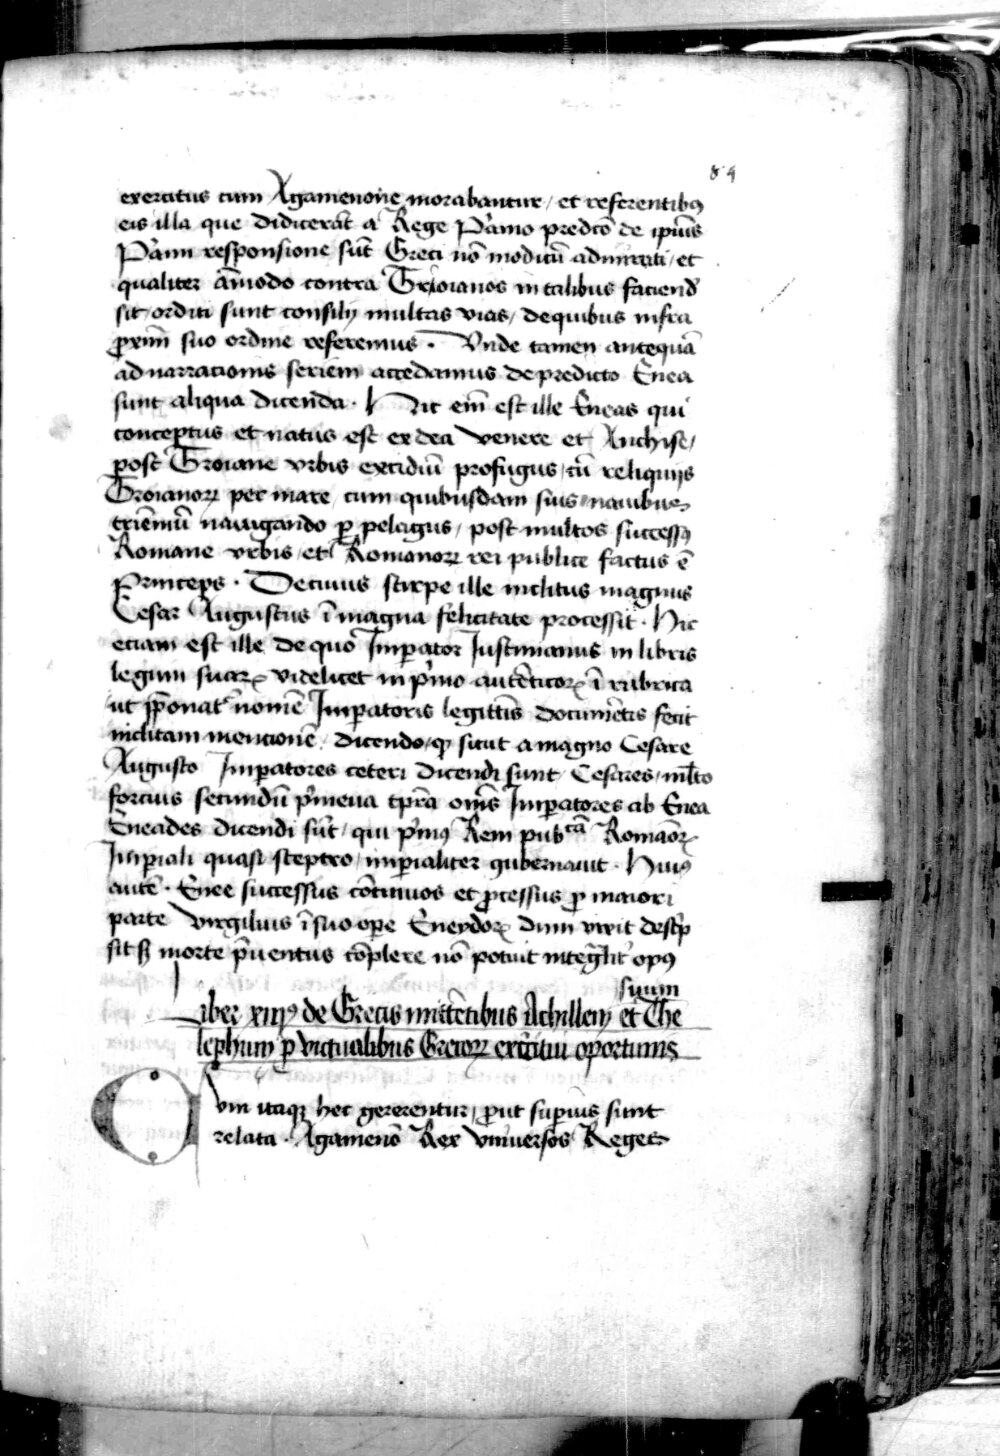 84
exercitus cum Agamenone morabantur / et referentibꝫ
eis illa que didicerāt a Rege Pͥamo predcō de ipīus
Pͥami responsione sūt Greci nō modicū admirati / et
qualiter āmodo contra Troianos in talibus faciend̄
sit / orditi sunt consilij multas vias / de quibus infra
ꝓxim̄ suo ordine referemus · Vnde tamen antequā
ad narracionis seriem accedamus de predicto Enea
sunt aliqua dicenda · Hic em̄ est ille Eneas qui
conceptus et natus est ex dea Venere et Anchise /
post Troiane vrbis excidiū profugus / cū reliquijs
Troianoꝝ per mare / cum quibusdam suis nauibus
triēniū nauigando ꝑ pelagus / post multos successꝰ
Romane vrbis / et Romanoꝝ rei publice factus ē
Princeps · De cuius stirpe ille inclitus magnus
Cesar Augustus ī magna felicitate processit · Hic
eciam est ille de quo Imꝑator Iustinianus in libris
legum suaꝝ videlicet in pͥmo autēticoꝝ ī rubrica
ut p̄ponatᷣ nomē Imꝑatoris legittīs documētis fecit
inclitam mencionē / dicendo / qꝫ sicut a magno Cesare
Augusto Imꝑatores ceteri dicendi sunt Cesares / ml̄to
forcius secundū pͥmeua tꝑa om̄s Imꝑatores ab Enea
Eneades dicendi sūt / qui pͥmꝰ Rem pubᶜᵃ̄ Romāoꝝ
Imꝑiali quasi sceptro / imꝑialiter gubernauit · Huiꝰ
autē · Enee successus cōtinuos et ꝓcessus ꝓ maiori
parte Virgilius ī suo oꝑe Eneydoꝝ dum vixit descͥp
sit sꝫ morte p̄uentus cōplere nō potuit integͣlit opꝰ
suum
Liber xiijꝰ de Grecis mittētibus Achillem et The
lephum ꝓ victualibus Grecoꝝ exͨitui oportunis
Cvm itaqꝫ hec gererentur / ꝓut suꝑius sunt
relata · Agamenō Rex vniuersos Reges